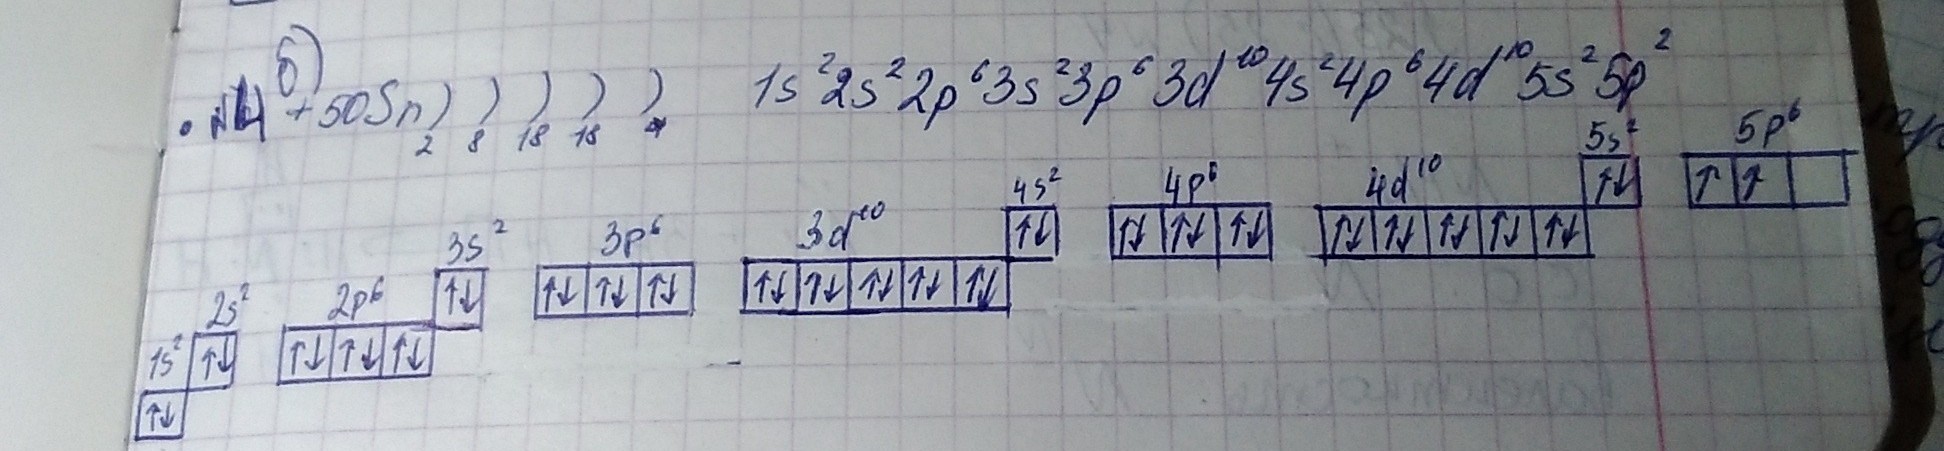 б) +50Sn ) ) ) ) ) 1s²2s²2p⁶3s²3p⁶3d¹⁰4s²4p⁶4d¹⁰5s²5p²
2 8 18 18
5s² 5p⁶
↑↓ ↑ ↑
4s² 4p⁶ 4d¹⁰
↑↓ ↑↓ ↑↓ ↑↓ ↑↓ ↑↓ ↑↓ ↑↓ ↑↓
3s² 3p⁶ 3d¹⁰
↑↓ ↑↓ ↑↓ ↑↓ ↑↓ ↑↓ ↑↓ ↑↓ ↑↓
2s² 2p⁶
↑↓ ↑↓ ↑↓ ↑↓
1s²
↑↓